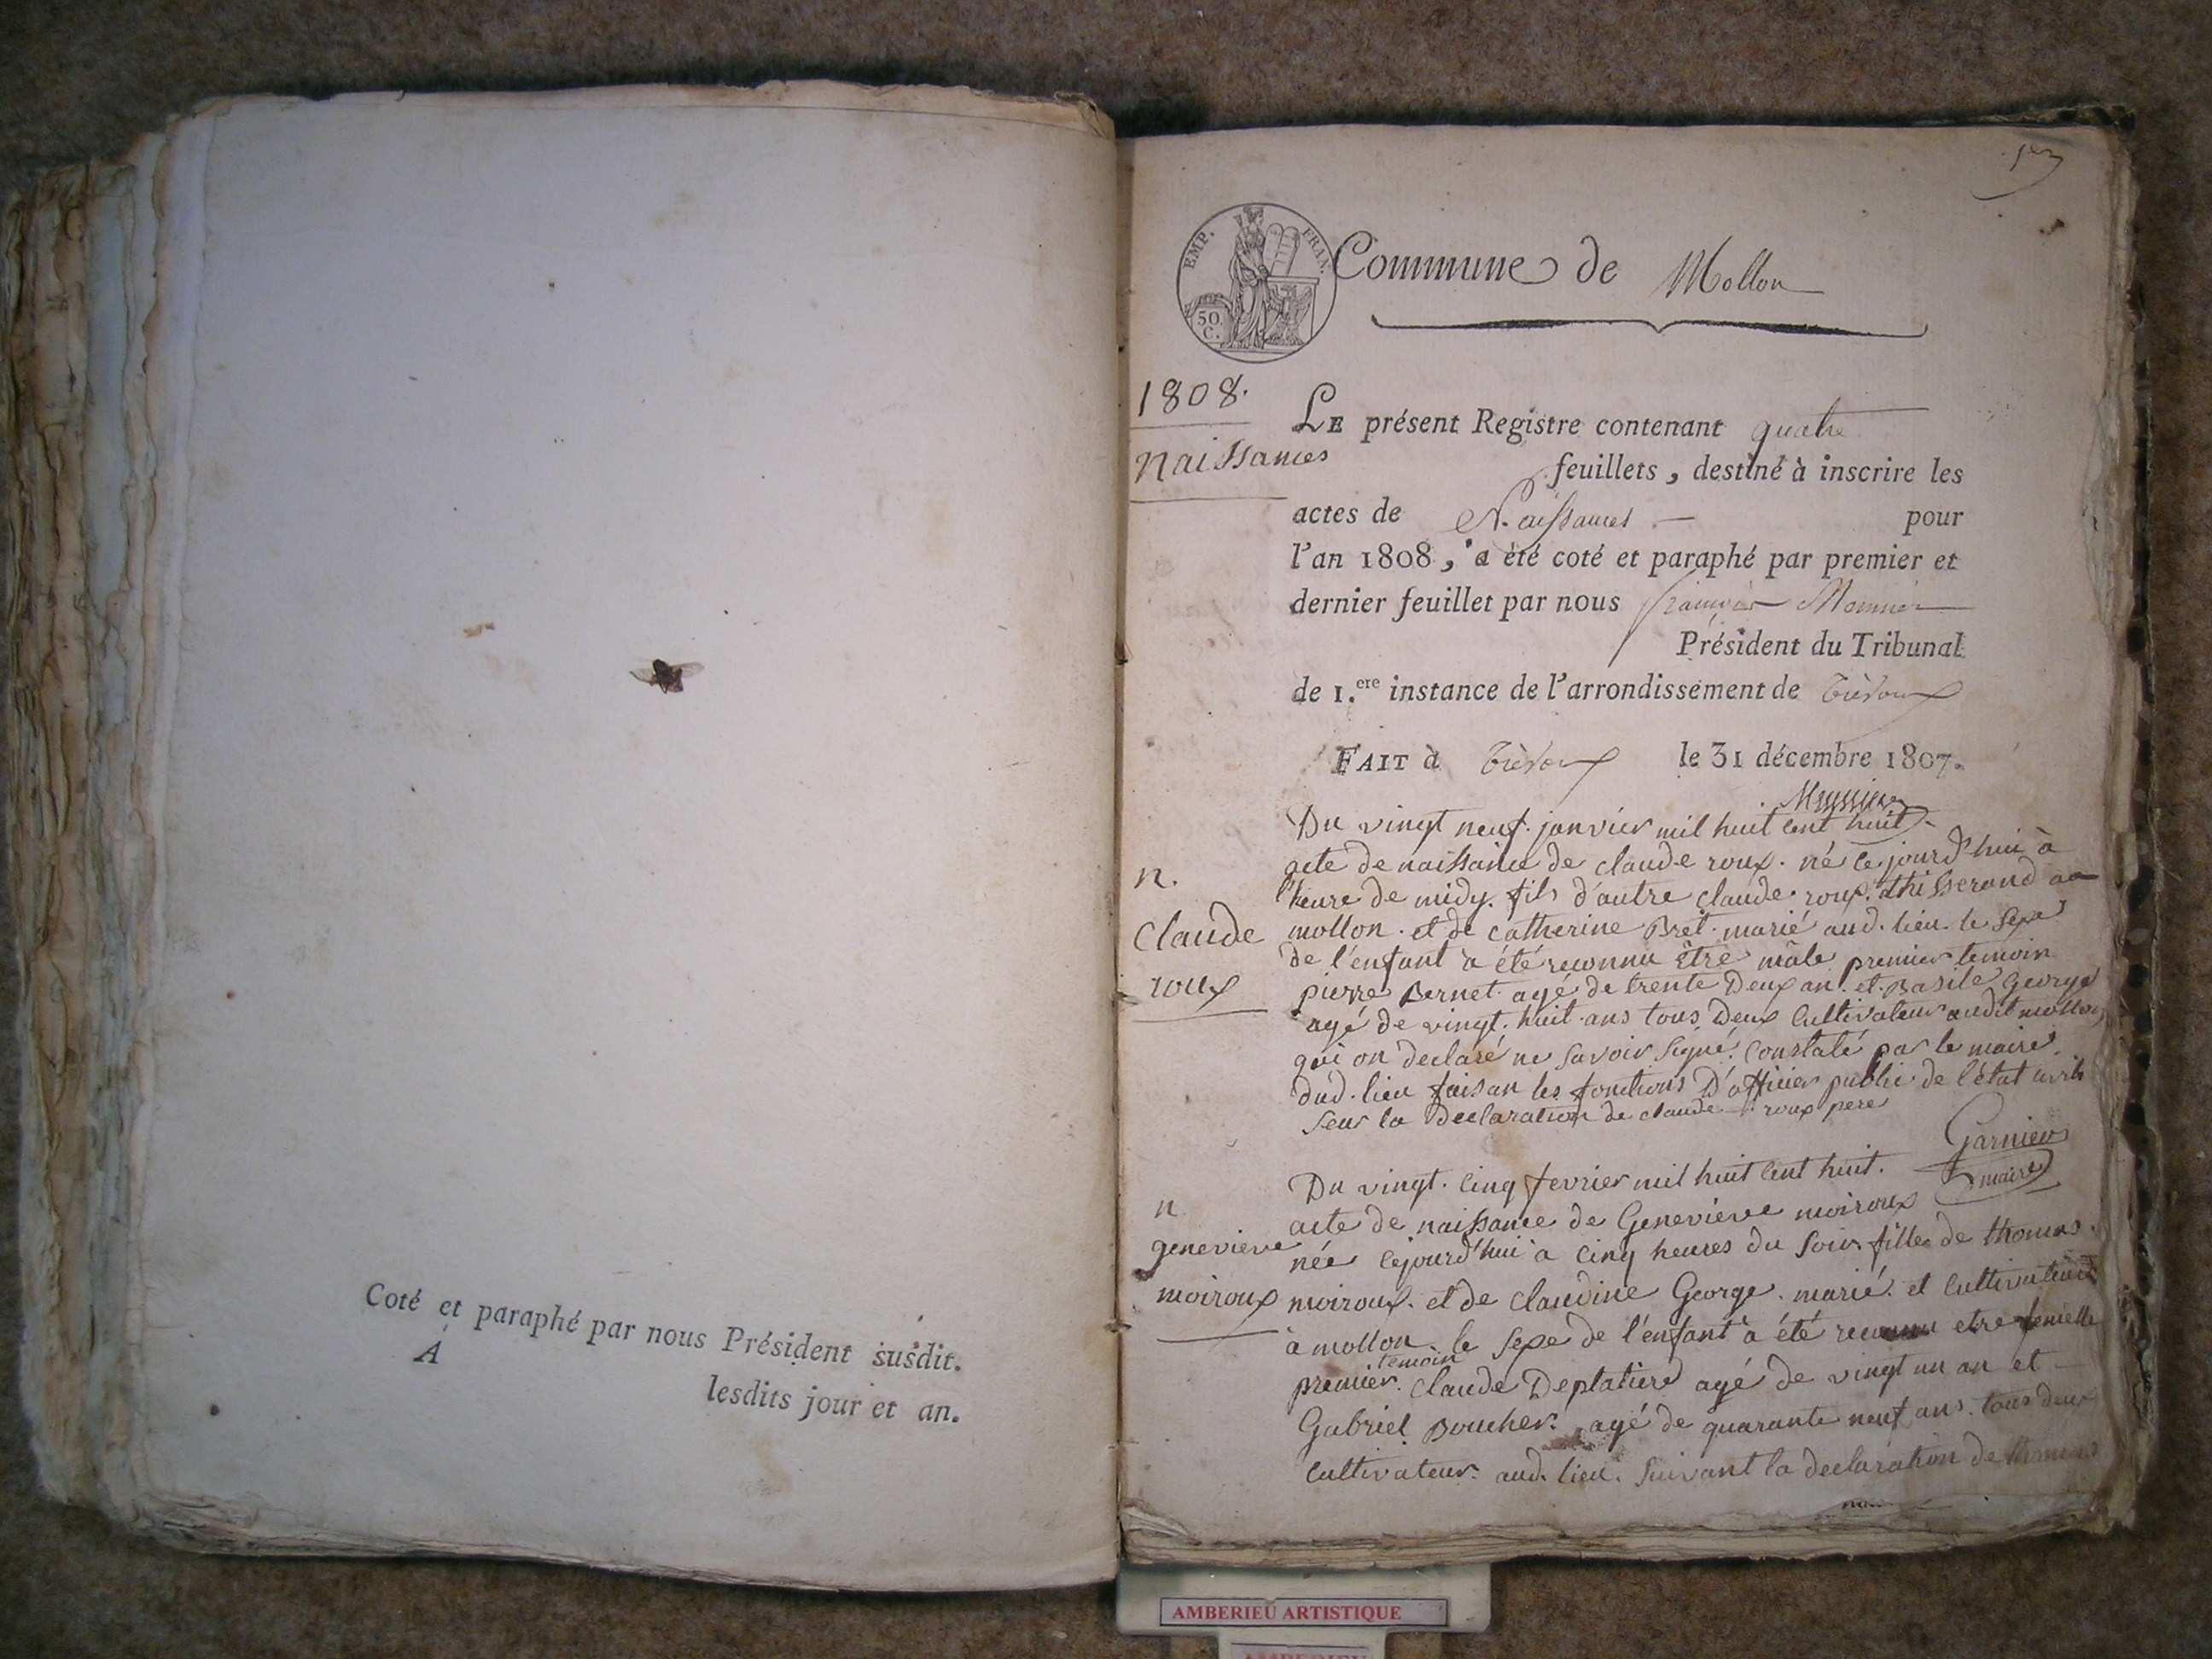 Coté et paraphé par nous Président susdit.
A
lesdits jour et an.
1er
EMP. FRAN.
50 C.
Commune de Mollon
1808.
naissances
LE présent Registre contenant quatre
feuillets, destiné à inscrire les
actes de Naissances pour
l'an 1808, a été coté et paraphé par premier et
dernier feuillet par nous
Président du Tribunal
de 1.ere instance de l'arrondissement de Trévoux
FAIT à Trévoux le 31 décembre 1807.
Du vingt neuf janvier mil huit cent huit
n.
Claude
roux
acte de naissance de claude roux. né ce jourd'hui à
l'heure de midy. fils d'autre claude roux. thisserand au
mollon. et de catherine Bret. marié aud. lieu. le sexe
de l'enfant à été reconnu être mâle premier temoin
pierre Bernet agé de trente Deux an. et Basile George
agé de vingt. huit ans tous Deux Cultivateur audit mollon
qui on declaré ne savoir signé. Constaté par le maire
dud. lieu faisan les fonctions D'officier public de l'état civil
seur la Declaration de claude roux pere
Garnier
maire
Du vingt. Cinq fevrier mil huit Cent huit.
n
genevieve
moiroux
acte de naissance de Genevieve moiroux
née cejourd'hui à Cinq heures du soir. fille de thomas
moiroux. et de Claudine George. marié. et Cultivateur
à mollon. le sexe de l'enfant à été reconnu etre femelle
premier temoin Claude Deplatiere agé de vingt un an et
Gabriel Boucher. agé de quarante neuf ans. tous deux
Cultivateur. aud. lieu. suivant la declaration de thomas